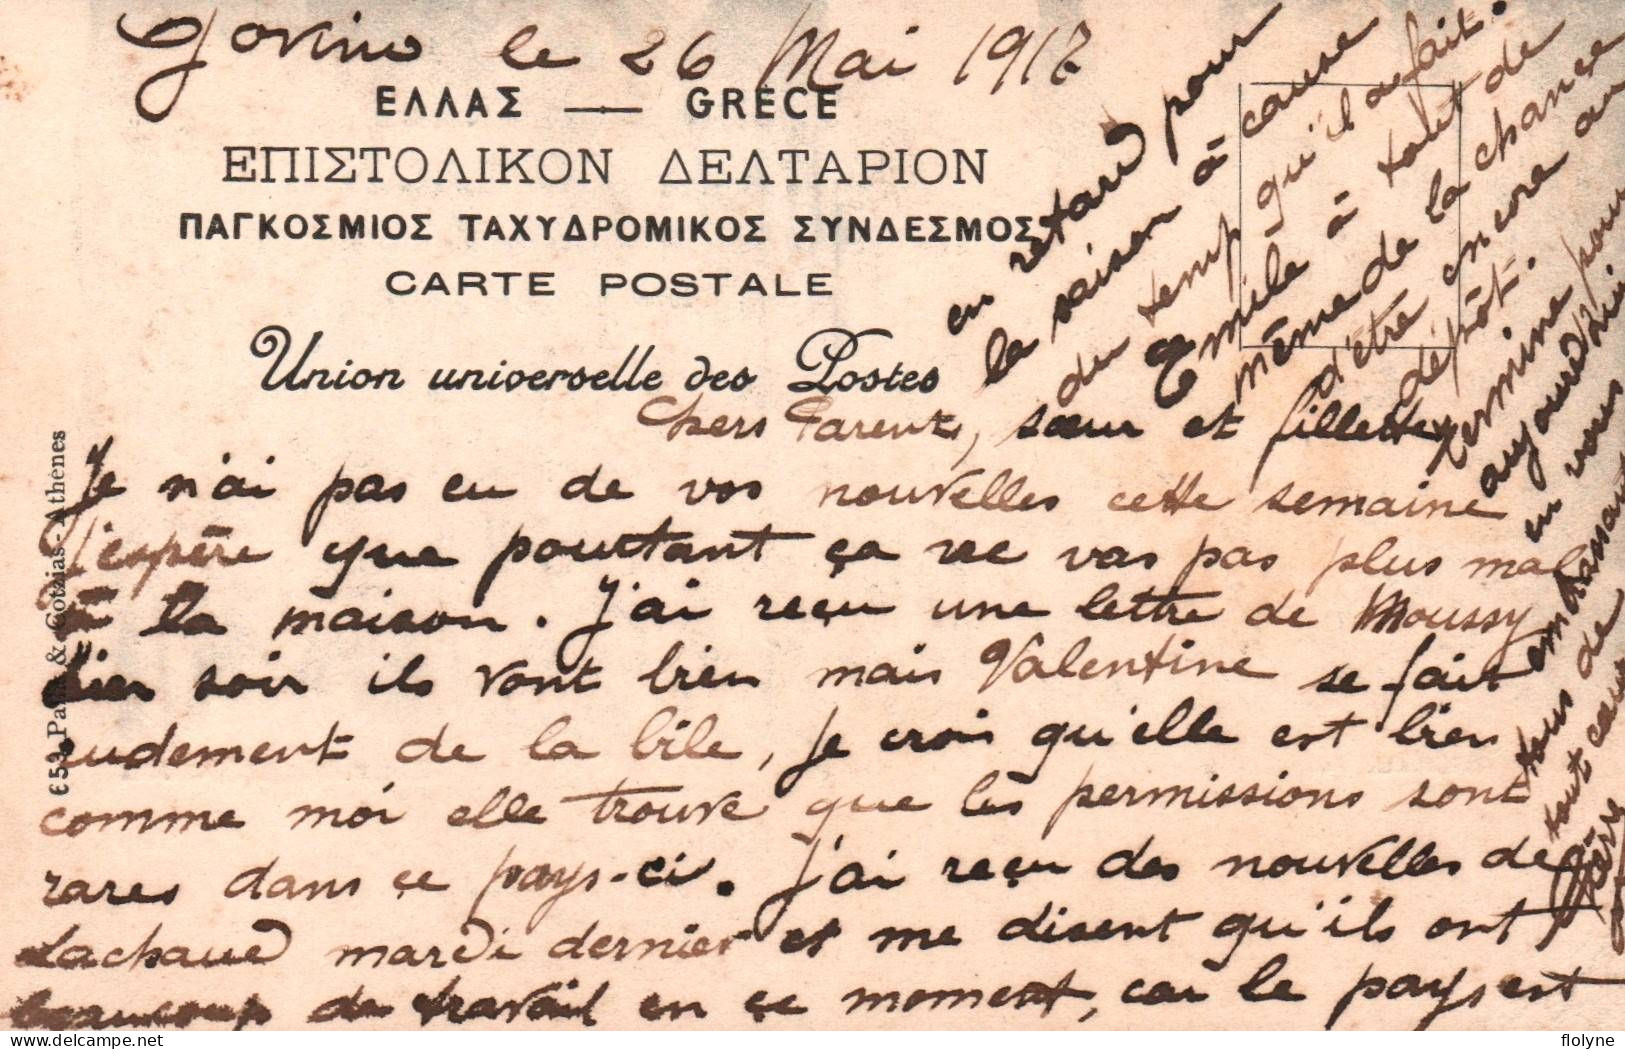 Govino le 26 Mai 1917
ΕΛΛΑΣ — GRÈCE
ΕΠΙΣΤΟΛΙΚΟΝ ΔΕΛΤΑΡΙΟΝ
ΠΑΓΚΟΣΜΙΟΣ ΤΑΧΥΔΡΟΜΙΚΟΣ ΣΥΝΔΕΣΜΟΣ
CARTE POSTALE
Union universelle des Postes
Chers Parents, sœur et fillettes
Je n'ai pas eu de vos nouvelles cette semaine
J'espère que pourtant ça ne vas pas plus mal
à la maison. J'ai reçu une lettre de Moussy
hier soir ils vont bien mais Valentine se fait
rudement de la bile, je crois qu'elle est bien
comme moi elle trouve que les permissions sont
rares dans ce pays-ci. J'ai reçu des nouvelles de
Lachaud mardi dernier et me disent qu'ils ont
beaucoup de travail en ce moment, car le pays est
en retard pour
la saison à cause
du temp qu'il a fait.
Emile à tout de
même de la chance
d'être encore au
dépôt.
termine pour
aujourd'hui
en vous
embrassant
tous de
tout cœur
653 & Cotzias - Athènes
flolyne
delcampe.net